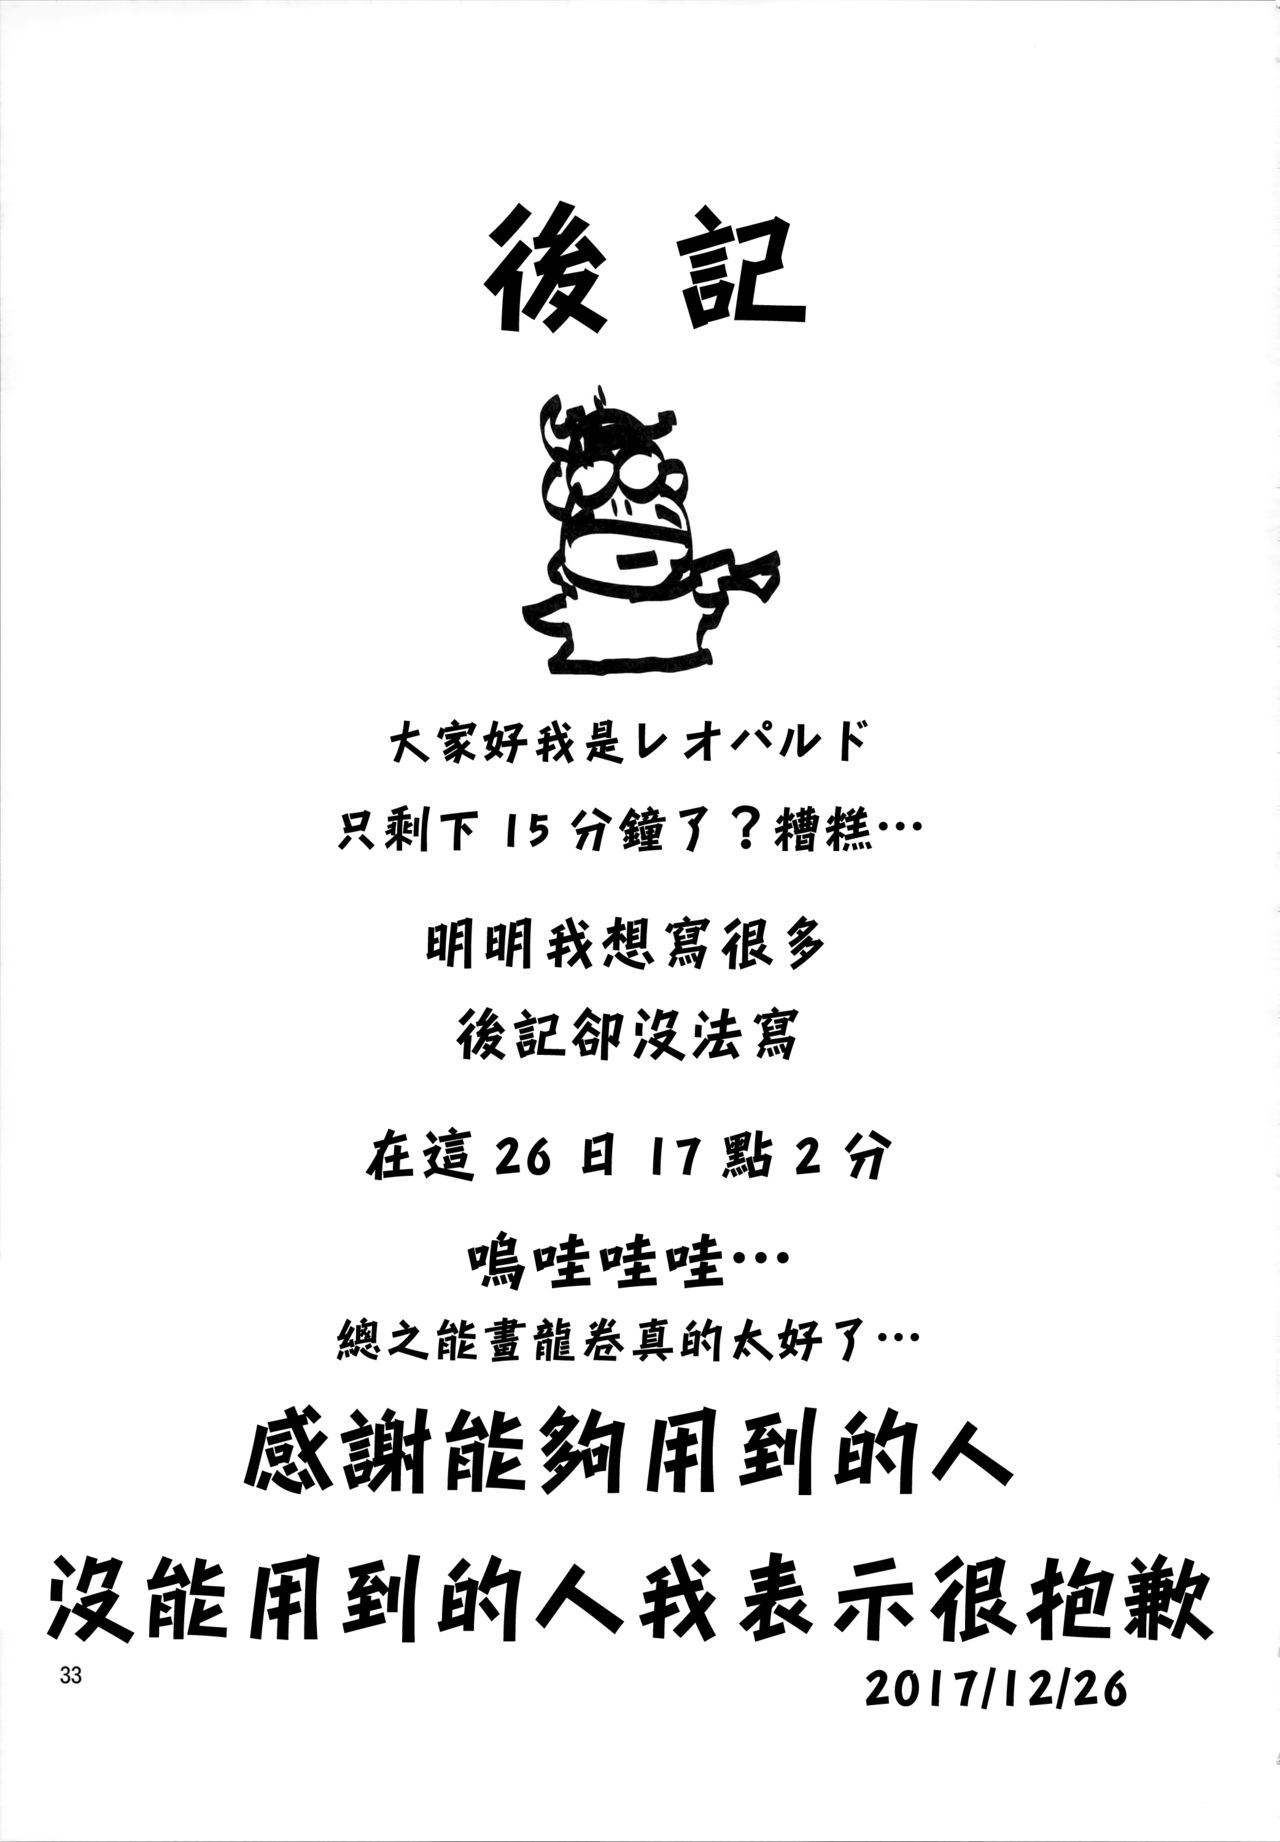 後記
大家好我是レオパルド
只剩下15分鐘了？糟糕…
明明我想寫很多
後記卻沒法寫
在這26日17點2分
嗚哇哇哇…
總之能畫龍卷真的太好了…
感謝能夠用到的人
沒能用到的人我表示很抱歉
33
2017/12/26